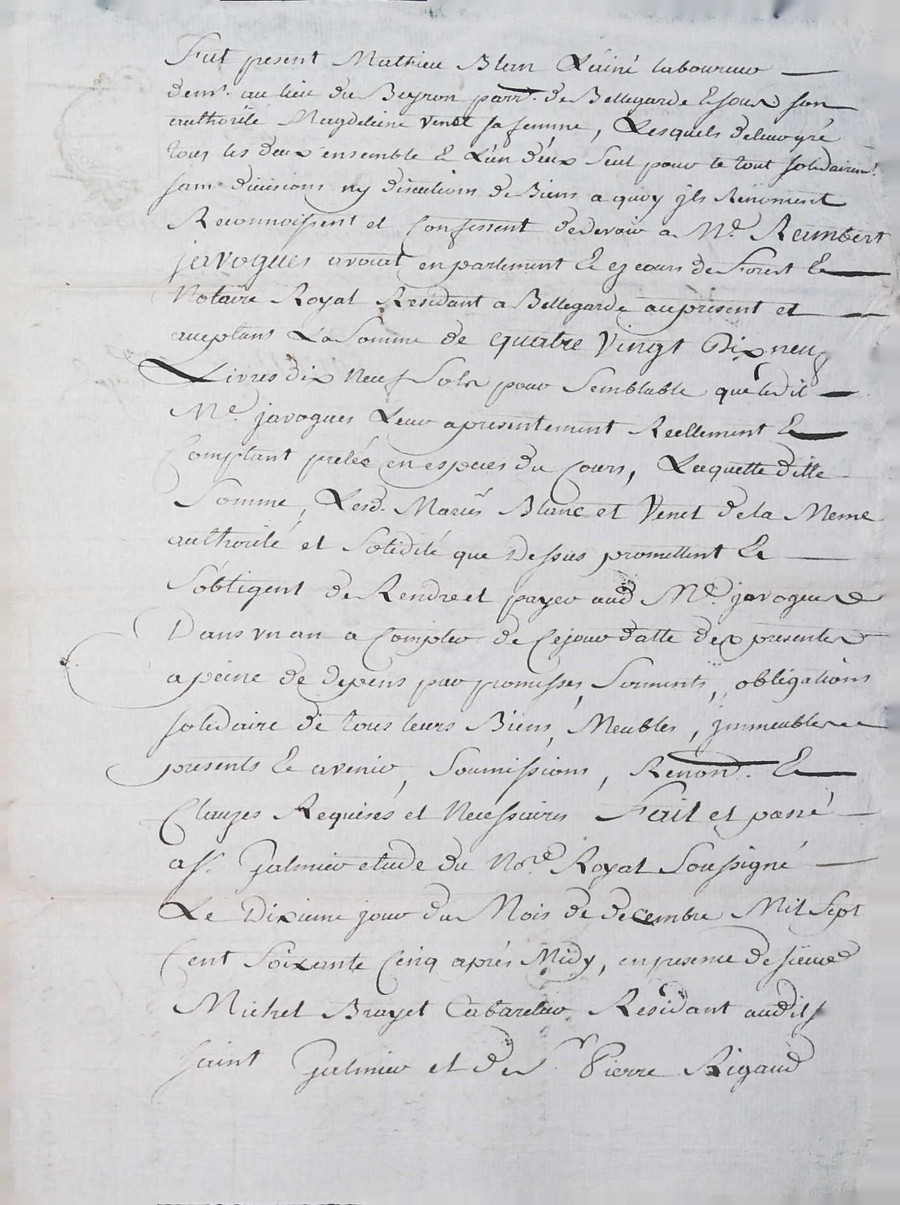 Fut present Mathieu Blan L'ainé laboureur
demt. au lieu du Beyron parr. de Bellegarde & sous son
authorité Magdeleine Venet sa femme, Lesquels de leur gré
tous les deux ensemble & L'un d'eux seul pour le tout solidairemt.
sans divisions ny discutions de Biens a quoy jls Renoncent
Reconnoissent et Confessent de devoir a Me. Reimbert
javogues avocat en parlement & ez cours de Forest &
Notaire Royal Residant a Bellegarde au present et
acceptans La Somme de quatre Vingt Dix neuf
Livres dix neuf Sols pour Semblable que ledit
Me. javogues Leur a presentement Reellement &
Comptant pretés en especes du Cours, Laquelle ditte
Somme, Lesd. Mariés Blanc et Venet de la Meme
authorité et Solidité que Dessus promettent &
S'obligent de Rendre et payer aud Me. javogues
Dans vn an a Compter de Cejour datte des presentes
a peine de depens par promisses, Serments, obligations
solidaire de tous leurs Biens, Meubles, jmmeubles
presents & avenir, Soumissions, Renon. &
Clauzes Requises et Necessaires Fait et passé
a St. Galmier etude du Nore. Royal Soussigné
Le Dixieme jour du Mois de decembre Mil Sept
Cent Soixante Cinq aprés Midy, en presence de sieur
Michel Brayet Cabaretier Résidant audit
saint Galmier et de Sr Pierre Rigaud